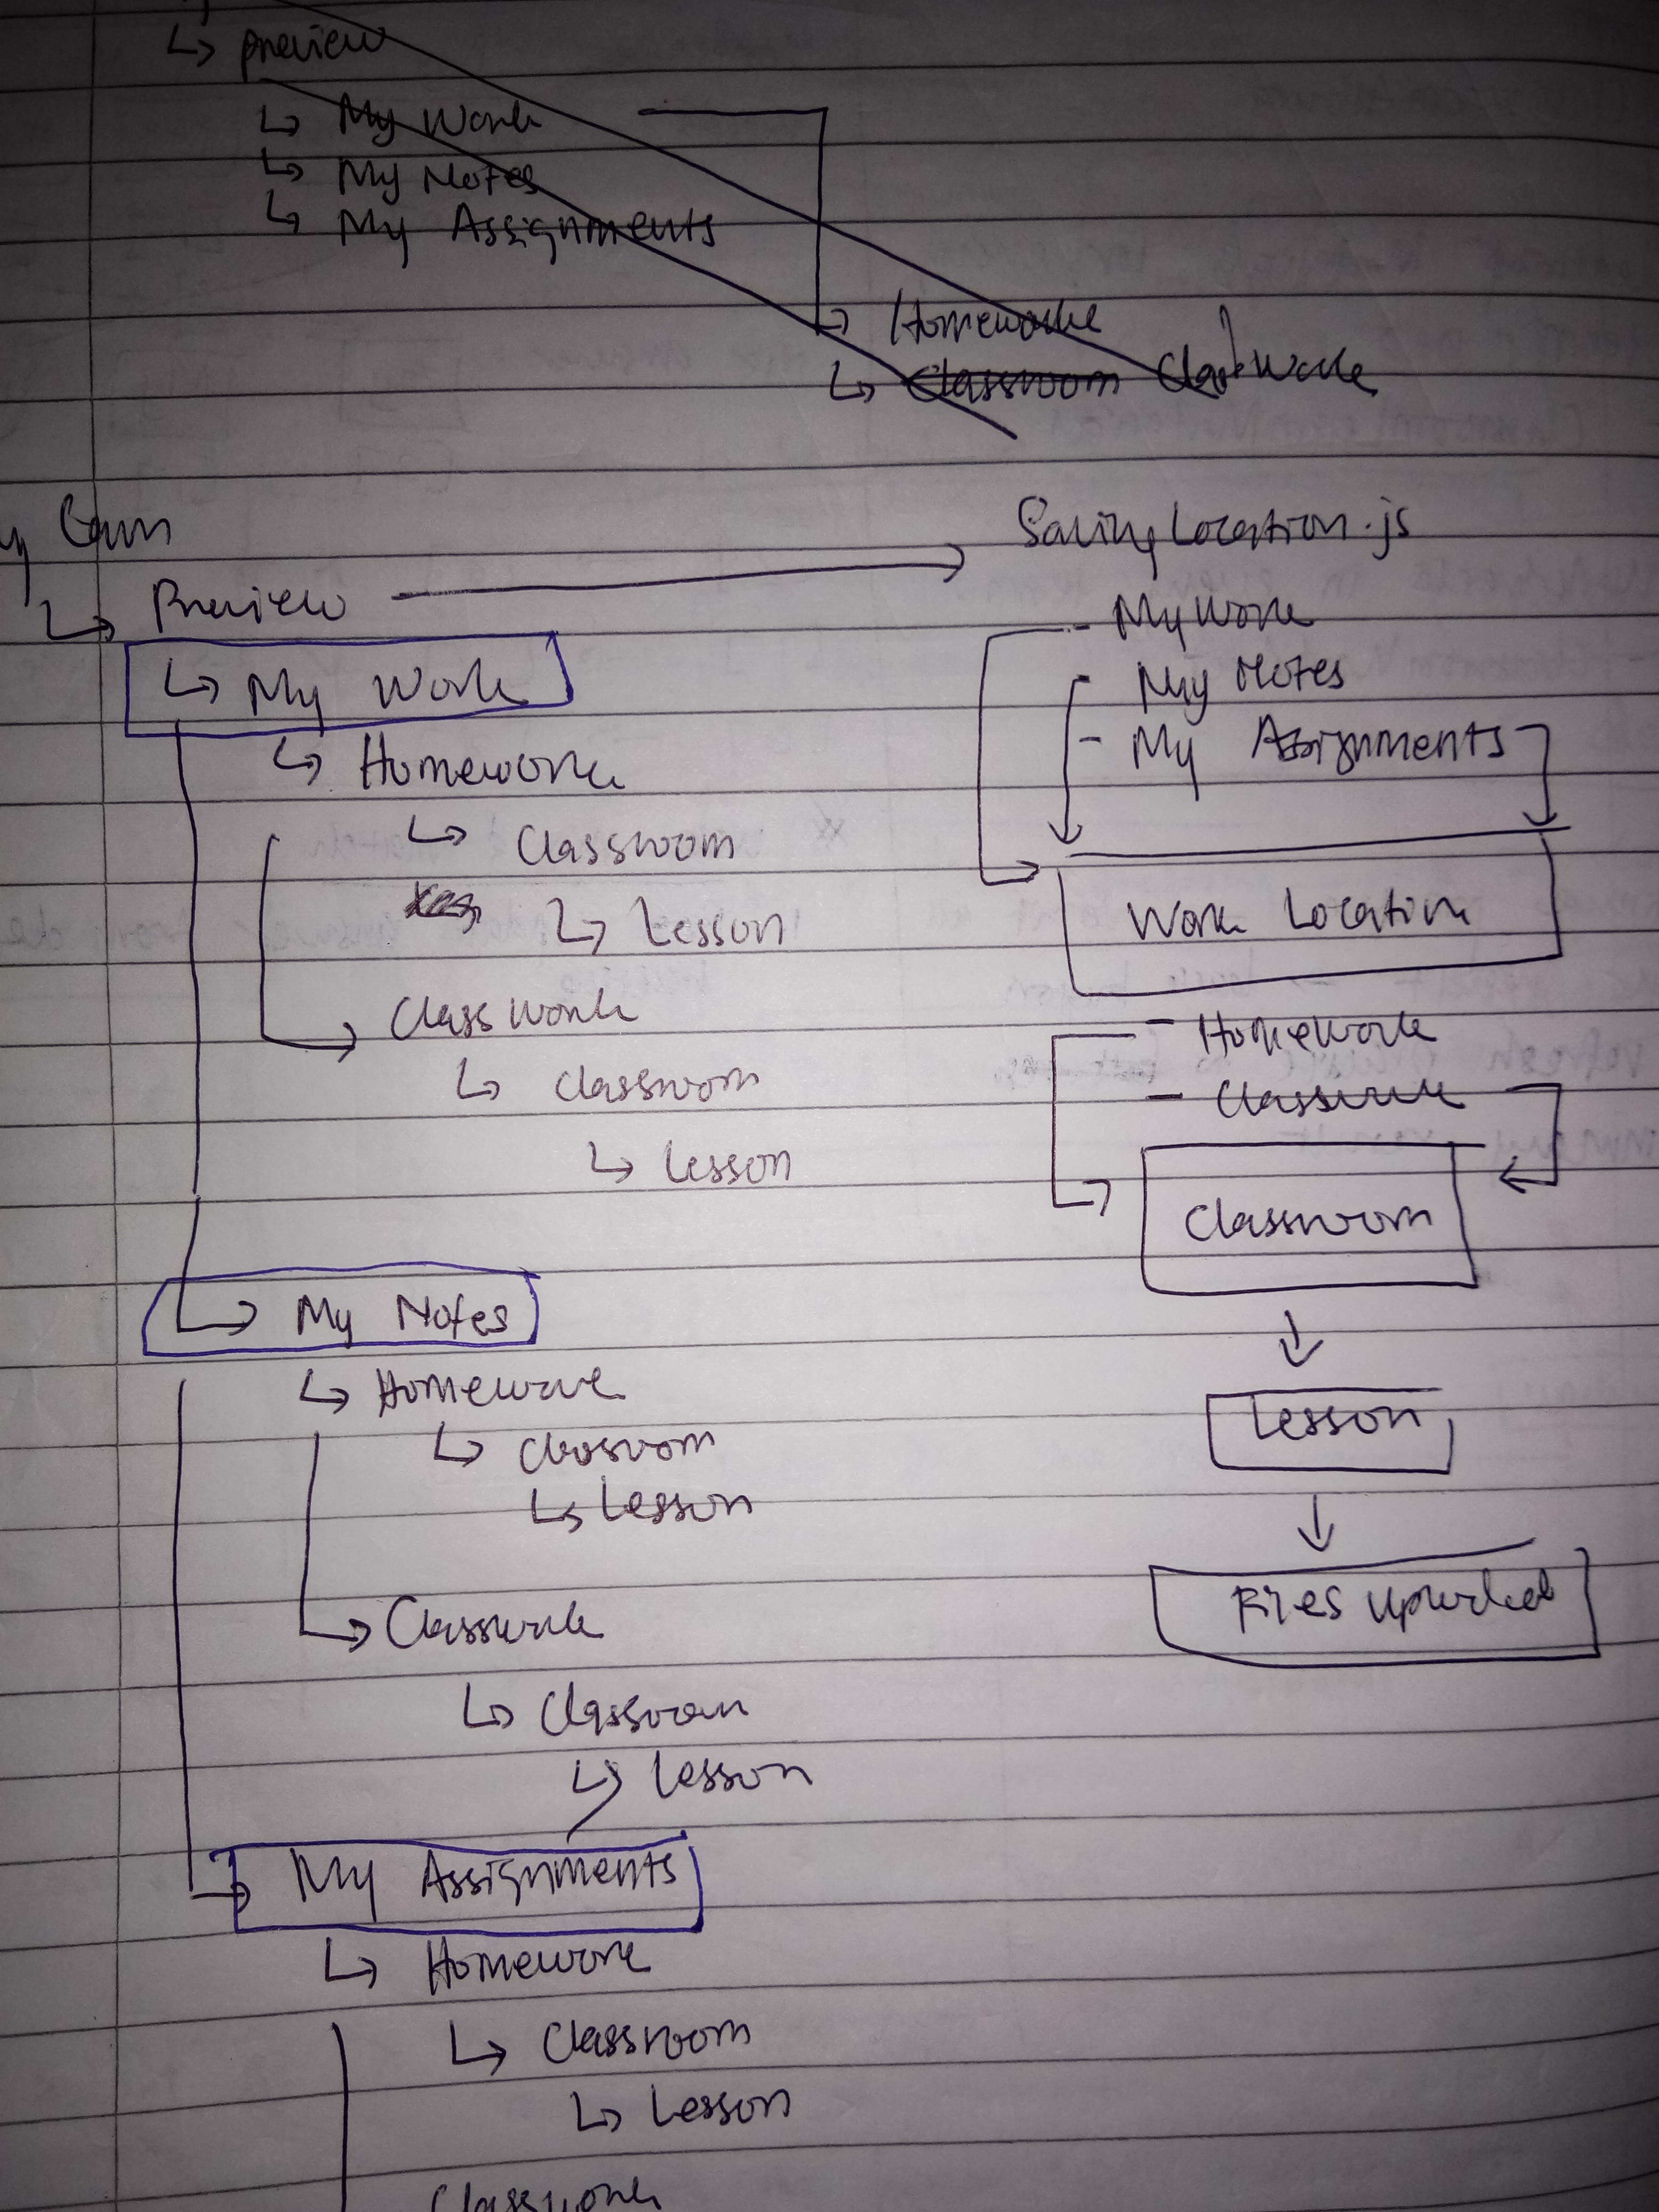 ↳ preview
↳ My Work
↳ My Notes
↳ My Assignments
↳ Homework
↳ Classroom ClassWork
↳ Preview → SavingLocation.js
↳ My Work
↳ Homework
↳ Classroom
↳ Lesson
Classwork
↳ Classroom
↳ Lesson
My Notes
↳ Homework
↳ Classroom
↳ Lesson
Classwork
↳ Classroom
↳ Lesson
My Assignments
↳ Homework
↳ Classroom
↳ Lesson
Classwork
- My Work
- My Notes
- My Assignments
Work Location
- Homework
- Classwork
Classroom
↓
Lesson
↓
Files uploaded